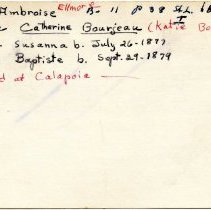 Ambroise Ellmor B- 11 p 38 St. L.
Catherine Bourjeau (Katie Bo
Susanna b. July 26-1877
Baptiste b. Sept. 29-1879
d at Calapoia